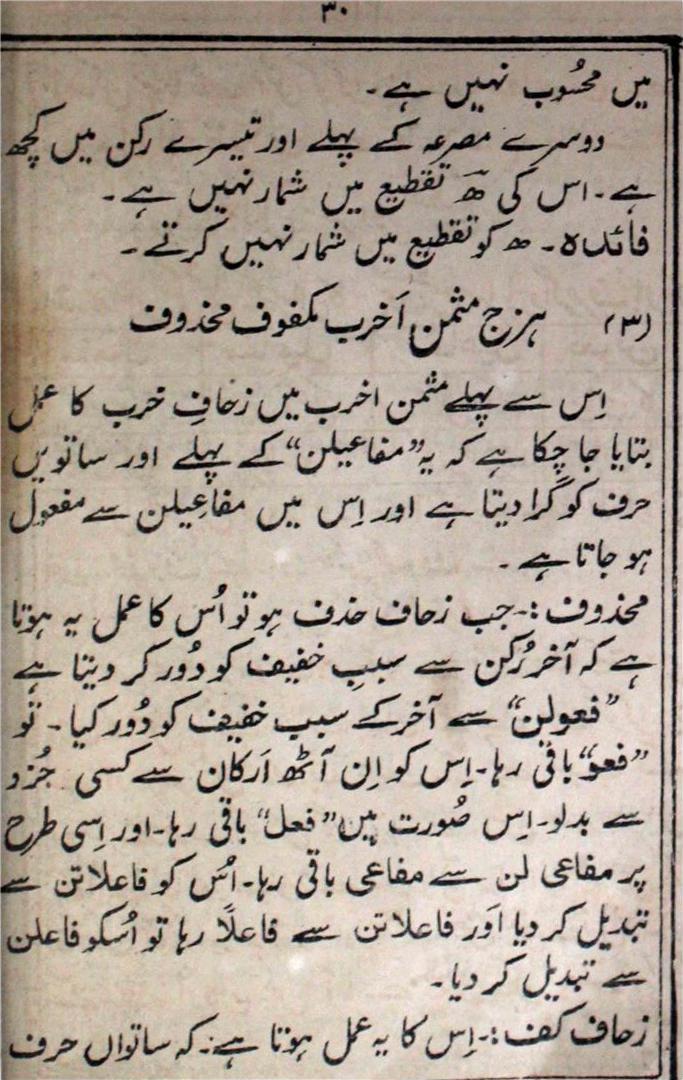 ۳۰
میں محسُوب نہیں ہے۔
دوسرے مصرعہ کے پہلے اور تیسرے رکن میں کچھ
ہے۔ اس کی ھ تقطیع میں شمار نہیں ہے۔
فائدہ۔ ھ کو تقطیع میں شمار نہیں کرتے۔
(۳) ہزج مثمن اَخرب مکفوف محذوف
اِس سے پہلے مثمن اخرب میں زحافِ خرب کا عمل
بتایا جا چکا ہے کہ یہ ”مفاعیلن“ کے پہلے اور ساتویں
حرف کو گرا دیتا ہے اور اِس میں مفاعیلن سے مفعول
ہو جاتا ہے۔
محذوف :۔ جب زحاف حذف ہو تو اُس کا عمل یہ ہوتا
ہے کہ آخر رُکن سے سببِ خفیف کو دُور کر دیتا ہے
”فعولن“ سے آخر کے سبب خفیف کو دُور کیا۔ تو
”فعو“ باقی رہا۔ اِس کو اِن آٹھ اَرکان سے کسی جُزو
سے بدلو۔ اِس صُورت میں ”فعل“ باقی رہا۔ اور اِسی طرح
پر مفاعی لن سے مفاعی باقی رہا۔ اُس کو فاعلاتن سے
تبدیل کر دیا اَور فاعلاتن سے فاعلًا رہا تو اُسکو فاعلن
سے تبدیل کر دیا۔
زحاف کف :۔ اِس کا یہ عمل ہوتا ہے۔ کہ ساتواں حرف